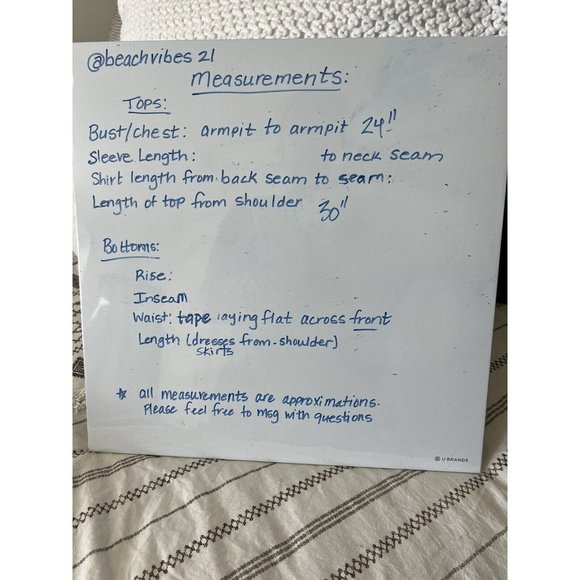 @beachvibes 21
Measurements:
Tops:
Bust/chest: armpit to armpit 24"
Sleeve Length: to neck seam
Shirt length from back seam to seam:
Length of top from shoulder 30"
Bottoms:
Rise:
Inseam
Waist: tape laying flat across front
Length (dresses from-shoulder)
skirts
* all measurements are approximations.
Please feel free to msg with questions
U BRANDS